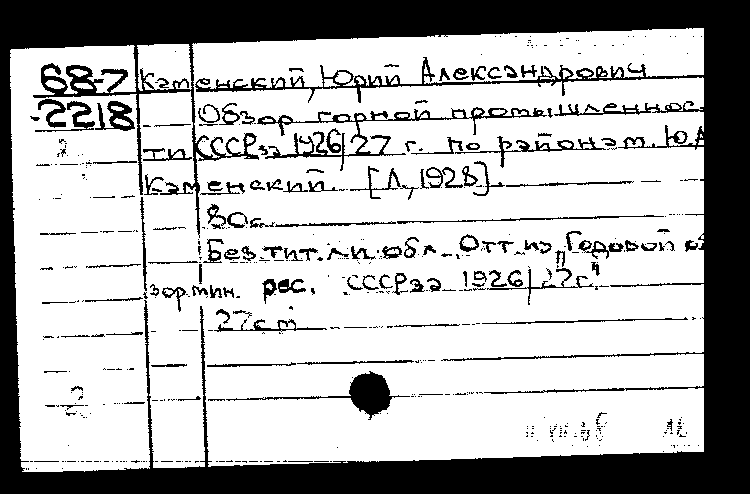 68-7 Каменский, Юрий Александрович
-2218 Обзор горной промышленнос-
2 ти СССР за 1926/27 г. по районам. Ю.А
Каменский. [Л., 1928].
80 с.
Без тит. л. и обл. Отт. из „Годовой об
зор мин. рес. СССР за 1926/27 г."
27 cm
2
11.VII.68